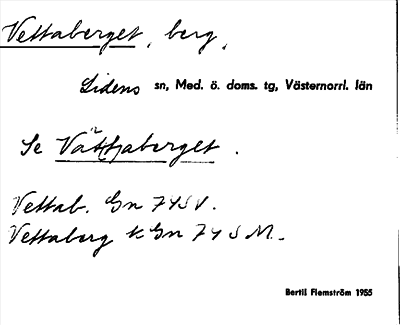 Vettaberget, berg,
Lidens sn, Med. ö. doms. tg, Västernorrl. län
Se Vättaberget.
Vettab. Gn 74SV.
Vettaberg k Gn 74 S M.
Bertil Flemström 1955